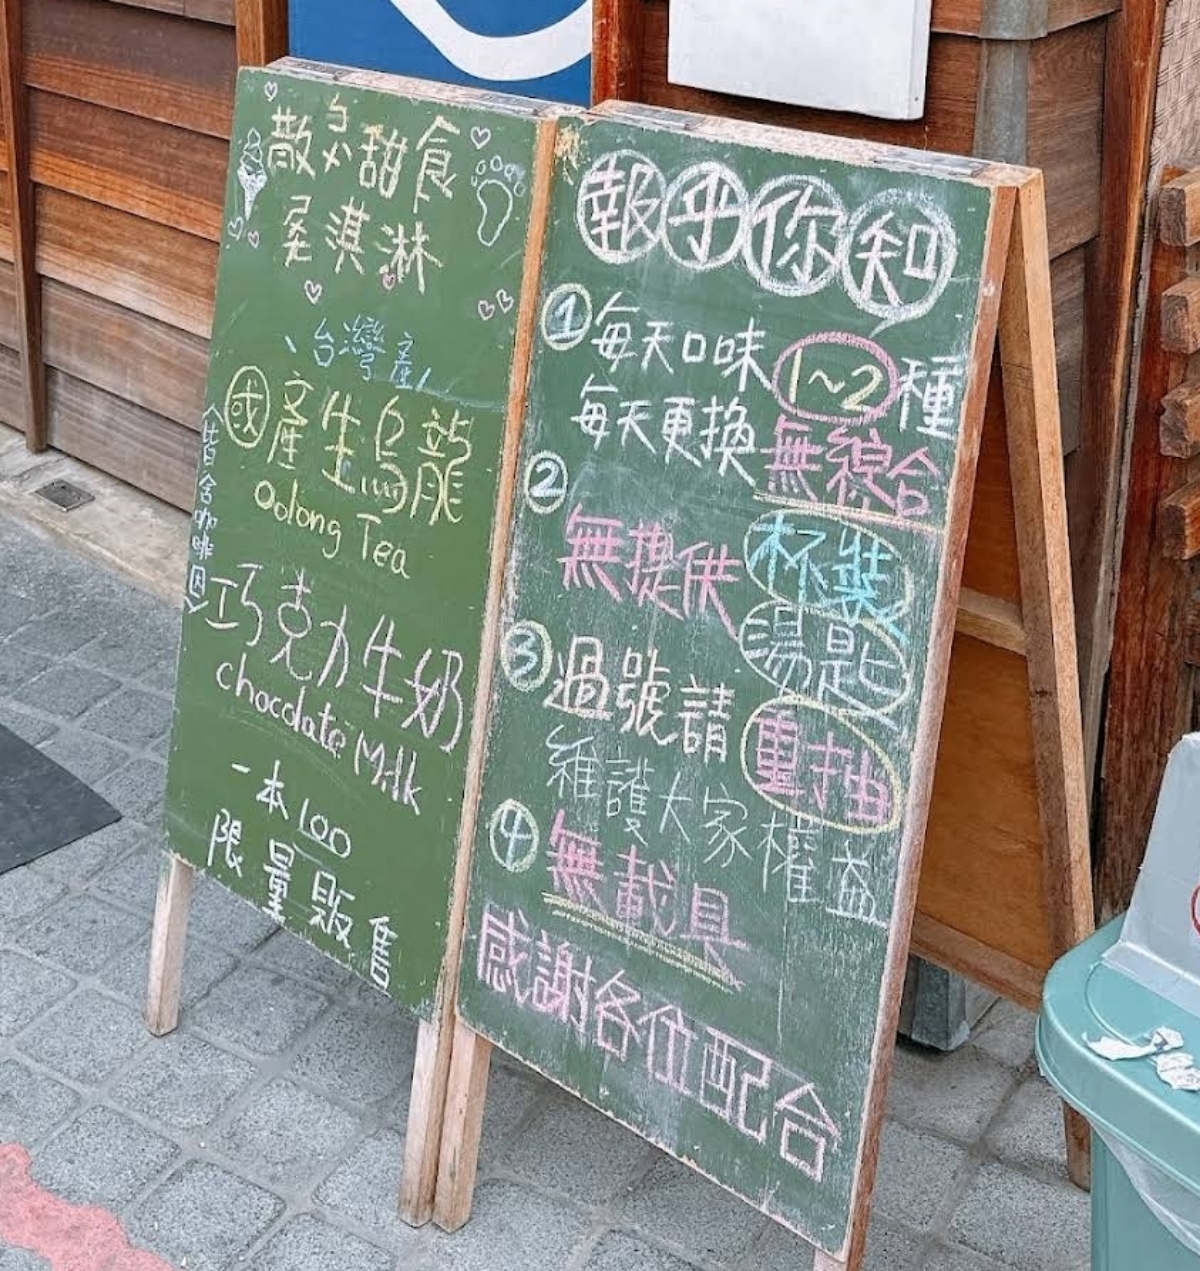 散ㄆㄨˋ甜食
桑淇淋
、台灣產/
國產生烏龍
Oolong Tea
巧克力牛奶
chocolate Milk
一本100
限量販售
(皆含咖啡因)
報乎你知
①每天口味1~2種
每天更換無綜合
②無提供杯裝
湯匙
③過號請重抽
維護大家權益
④無載具
感謝各位配合